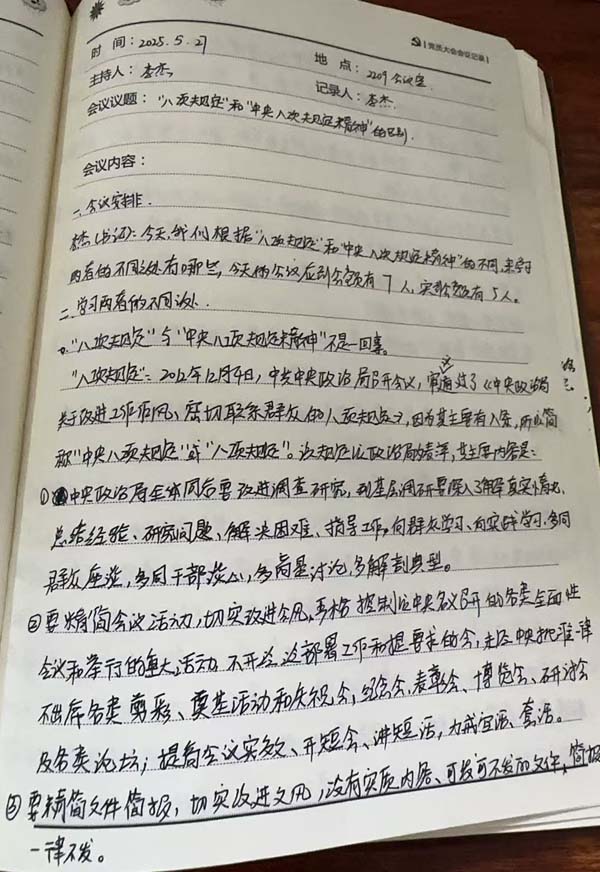 党员大会会议记录
时 间：2025.5.27
地 点：2209会议室
主持人：李杰
记录人：李杰.
会议议题："八项规定"和"中央八项规定精神"的区别.
会议内容：
一、会议安排.
李杰(书记)：今天,我们根据"八项规定"和"中央八项规定精神"的不同,来学习
两者的不同之处有哪些,今天的会议应到会员有7人,实到会员有5人。
二、学习两者的不同之处.
"八项规定"与"中央八项规定精神"不是一回事。
"八项规定"：2012年12月4日,中共中央政治局召开会议,审议通过了《中央政治局
关于改进工作作风、密切联系群众的八项规定》,因为其主要有八条,所以简
称"中央八项规定"或"八项规定"。该规定以政治局为表率,其主要内容是:
①中央政治局全体同志要改进调查研究,到基层调研要深入了解真实情况,
总结经验、研究问题、解决困难、指导工作,向群众学习、向实践学习,多同
群众座谈,多同干部谈心,多商量讨论,多解剖典型。
②要精简会议活动,切实改进会风,严格控制以中央名义召开的各类全国性
会议和举行的重大活动,不开泛泛部署工作和提要求的会,未经中央批准一律
不出席各类剪彩、奠基活动和庆祝会、纪念会、表彰会、博览会、研讨会
及各类论坛；提高会议实效、开短会、讲短话,力戒空话、套话。
③要精简文件简报,切实改进文风,没有实质内容、可发可不发的文件、简报
一律不发。